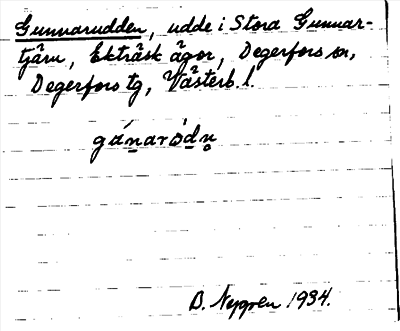 Gunnarudden, udde i Stora Gunnar-
tjärn, Ekträsk ägor, Degerfors sn,
Degerfors tg, Västerb. l.
gánaròdn̥
B. Nygren 1934.